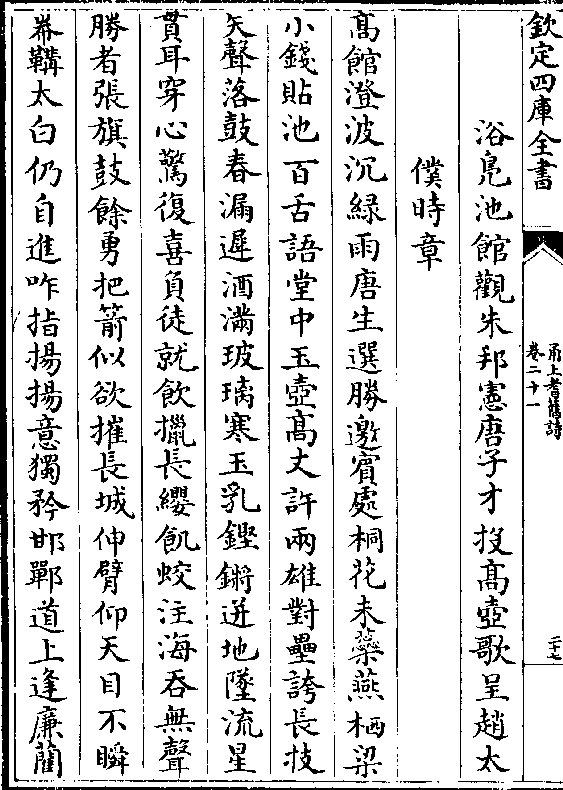 欽定四庫全書
甬上耆舊詩
卷二十一
二十七
浴鳧池館觀朱邦憲唐子才投高壺歌呈趙太
僕時章
高館澄波沉綠雨唐生選勝邀賓處桐花未蘂燕栖梁
小錢貼池百舌語堂中玉壺高丈許兩雄對壘誇長技
矢聲落鼓春漏遲酒滿玻璃寒玉乳鏗鏘迸地墜流星
貫耳穿心驚復喜負徒就飲擸長纓飢蛟注海吞無聲
勝者張旗鼓餘勇把箭似欲摧長城伸臂仰天目不瞬
綦鞲太白仍自進咋指揚揚意獨矜邯鄲道上逢廉藺